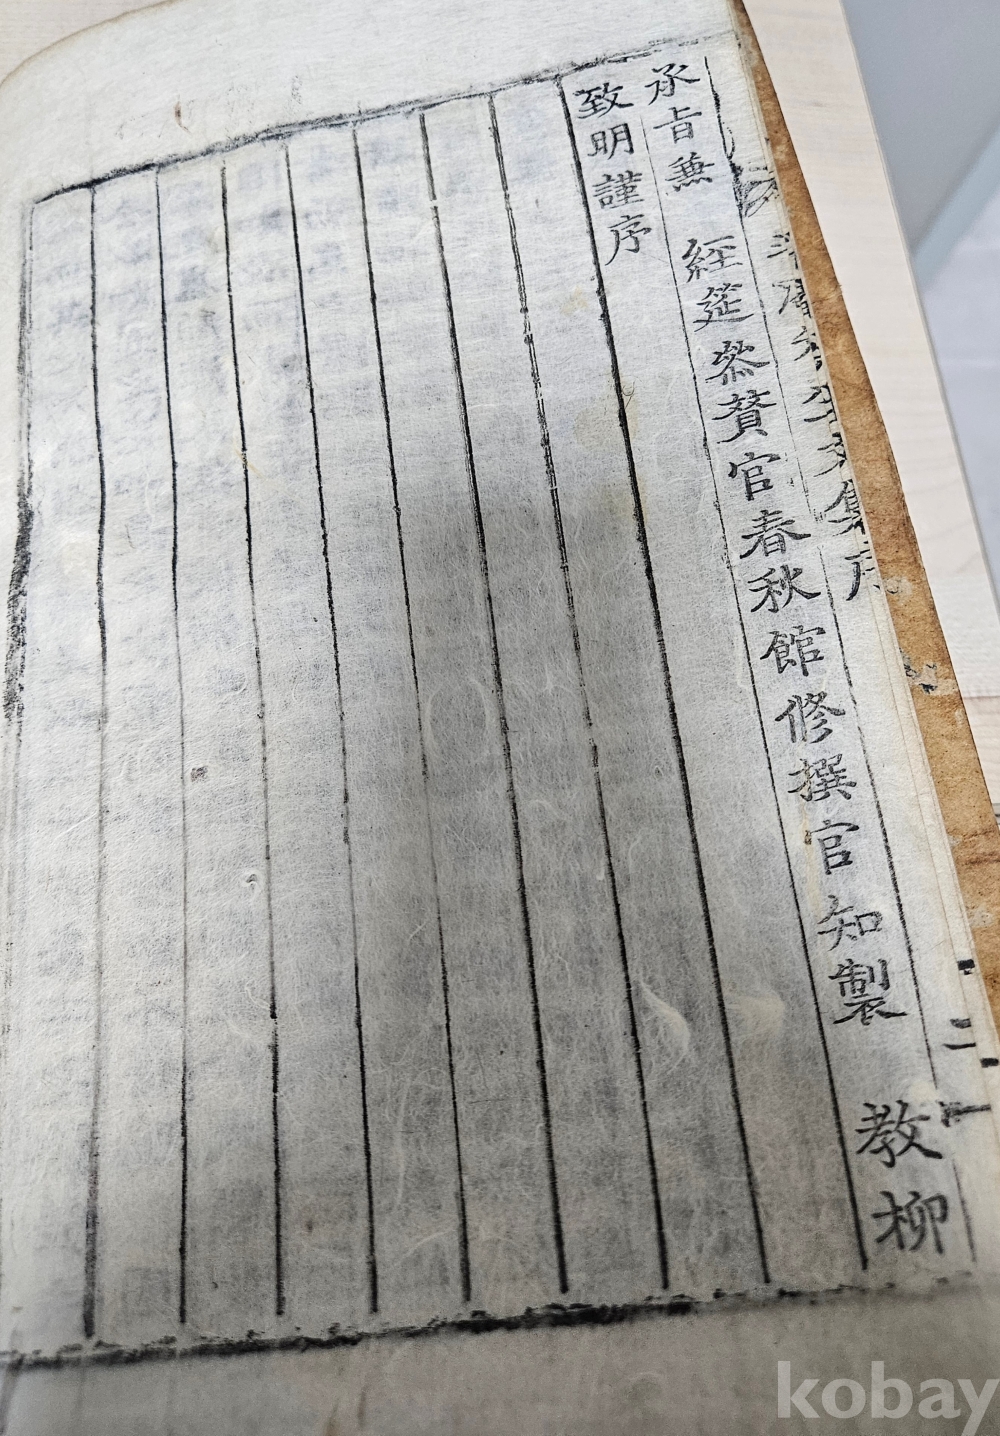 承旨兼 經筵叅賛官春秋館修撰官知製 教柳
致明謹序
文集序
二
kobay